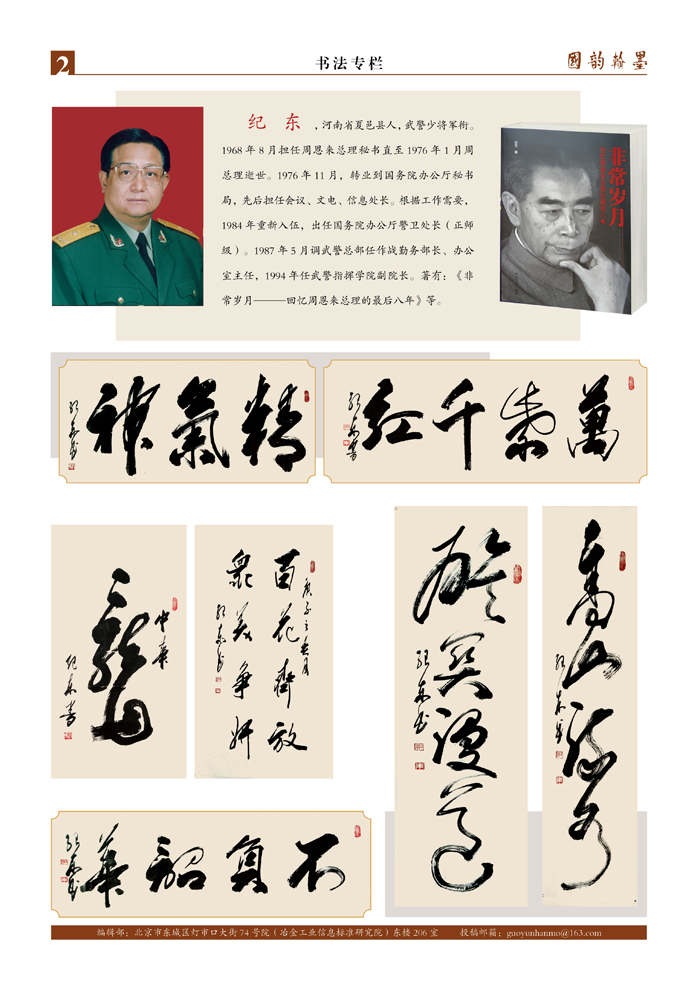 2
书法专栏
國韵翰墨
纪 东 ，河南省夏邑县人，武警少将军衔。
1968 年 8 月担任周恩来总理秘书直至 1976 年 1 月周
总理逝世。1976 年 11 月，转业到国务院办公厅秘书
局，先后担任会议、文电、信息处长。根据工作需要，
1984 年重新入伍，出任国务院办公厅警卫处长（正师
级）。1987 年 5 月调武警总部任作战勤务部长、办公
室主任，1994 年任武警指挥学院副院长。著有：《非
常岁月———回忆周恩来总理的最后八年》等。
非常岁月
精氣神
纪东书
萬紫千红
纪东书
中华
龍
纪东书
百花齊放
衆美争妍
纪东书
纪东书
高山流水
纪东书
不負韶華
纪东书
编辑部：北京市东城区灯市口大街 74 号院（冶金工业信息标准研究院）东楼 206 室
投稿邮箱：guoyunhanmo@163.com